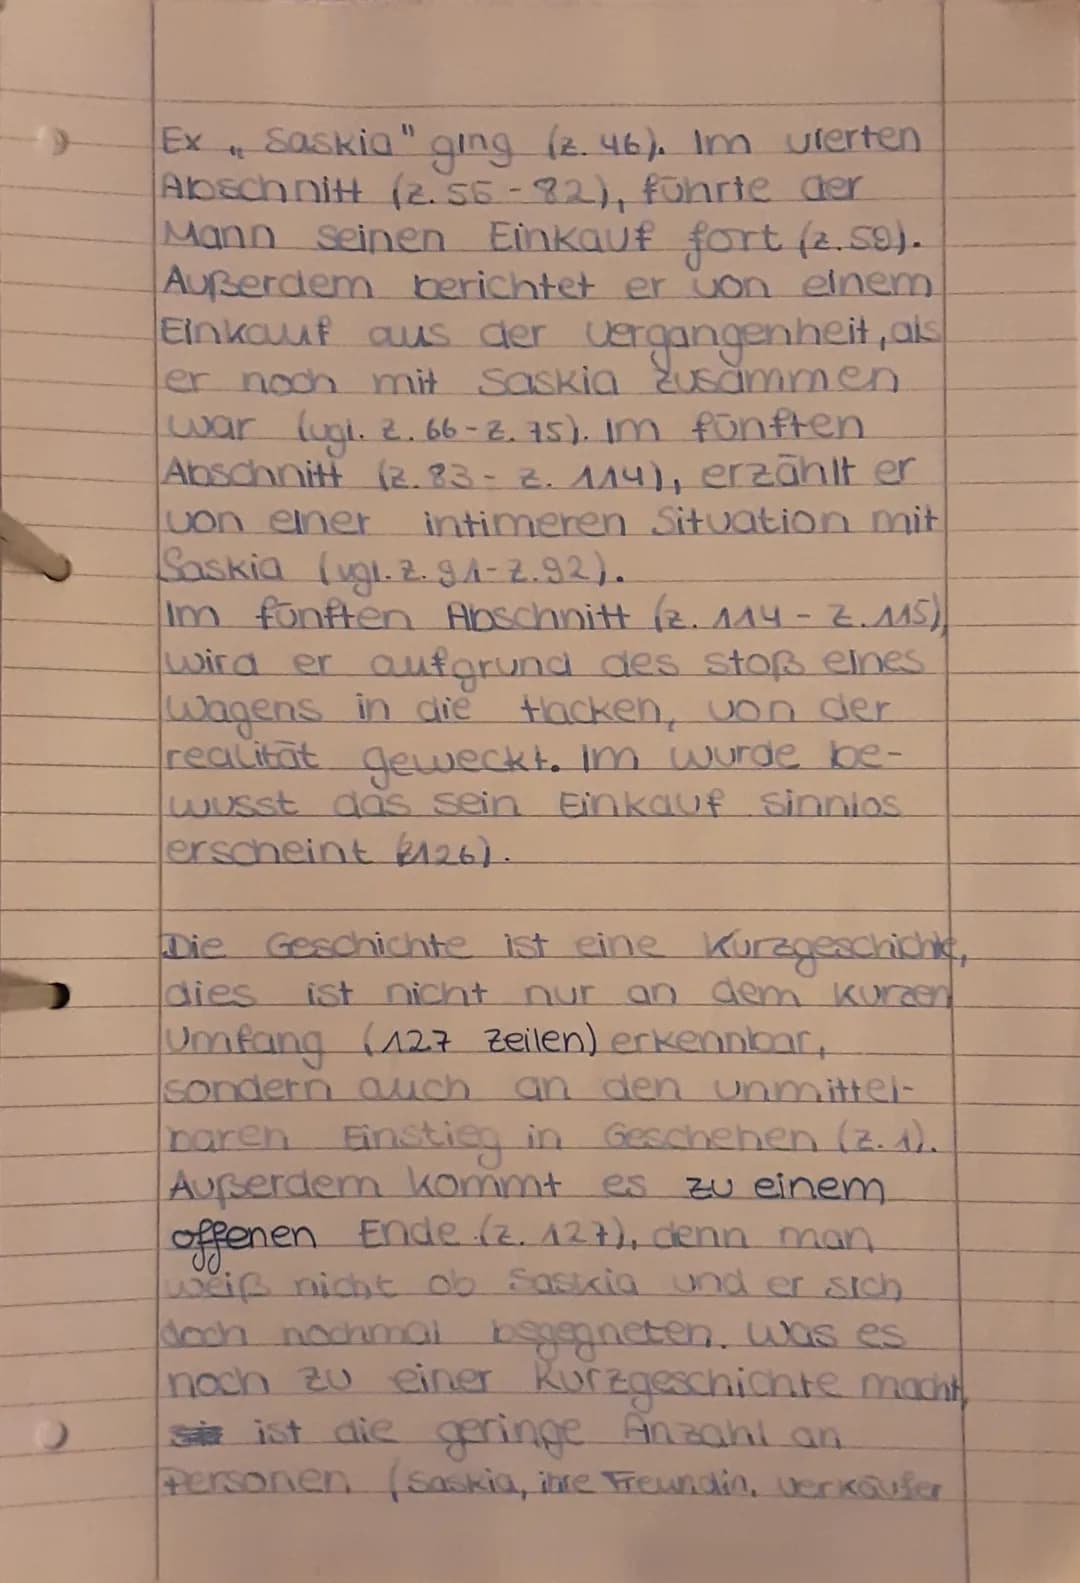 Ex „Saskia" ging (z. 46). Im vierten
Abschnitt (z. 56 - 82), führte der
Mann seinen Einkauf fort (z. 59).
Außerdem berichtet er von einem
Einkauf aus der Vergangenheit, als
er noch mit Saskia zusammen
war (vgl. z. 66 - z. 75). Im fünften
Abschnitt (z. 83 - z. 114), erzählt er
von einer intimeren Situation mit
Saskia (vgl. z. 91 - z. 92).
Im fünften Abschnitt (z. 114 - z. 115),
wird er aufgrund des stoß eines
Wagens in die Hacken, von der
realität geweckt. Im wurde be-
wusst das sein Einkauf sinnlos
erscheint (z. 126).
Die Geschichte ist eine Kurzgeschichte,
dies ist nicht nur an dem kurzen
Umfang (127 Zeilen) erkennbar,
sondern auch an den unmittel-
baren Einstieg in Geschehen (z. 1).
Außerdem kommt es zu einem
offenen Ende (z. 127), denn man
weiß nicht ob Saskia und er sich
doch nochmal begegneten. Was es
noch zu einer Kurzgeschichte macht,
ist die geringe Anzahl an
Personen (Saskia, ihre Freundin, Verkäufer